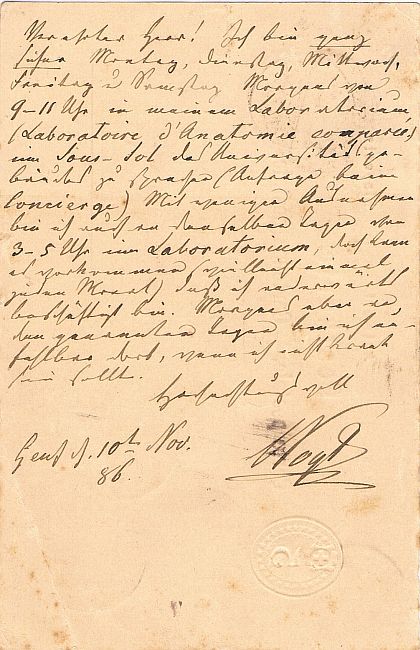 Verehrter Herr! Ich bin ganz
sicher Montag, Dienstag, Mittwoch,
Freitag u Samstag Morgens von
9-11 Uhr in meinem Laboratorium
(Laboratoire d'Anatomie comparée,
im Sous-Sol des Universitätsge-
bäudes zu sprechen (Anfrage beim
Concierge) Mit wenigen Ausnahmen
bin ich auch an denselben Tagen von
3-5 Uhr im Laboratorium, doch kann
es vorkommen (vielleicht einmal
jeden Monat) daß ich anderwärts
beschäftigt bin. Morgens aber an
den genannten Tagen bin ich un-
fehlbar dort, wenn ich nicht krank
sein sollte.
Hochachtungsvoll
Genf d. 10t Nov. CVogt
86.